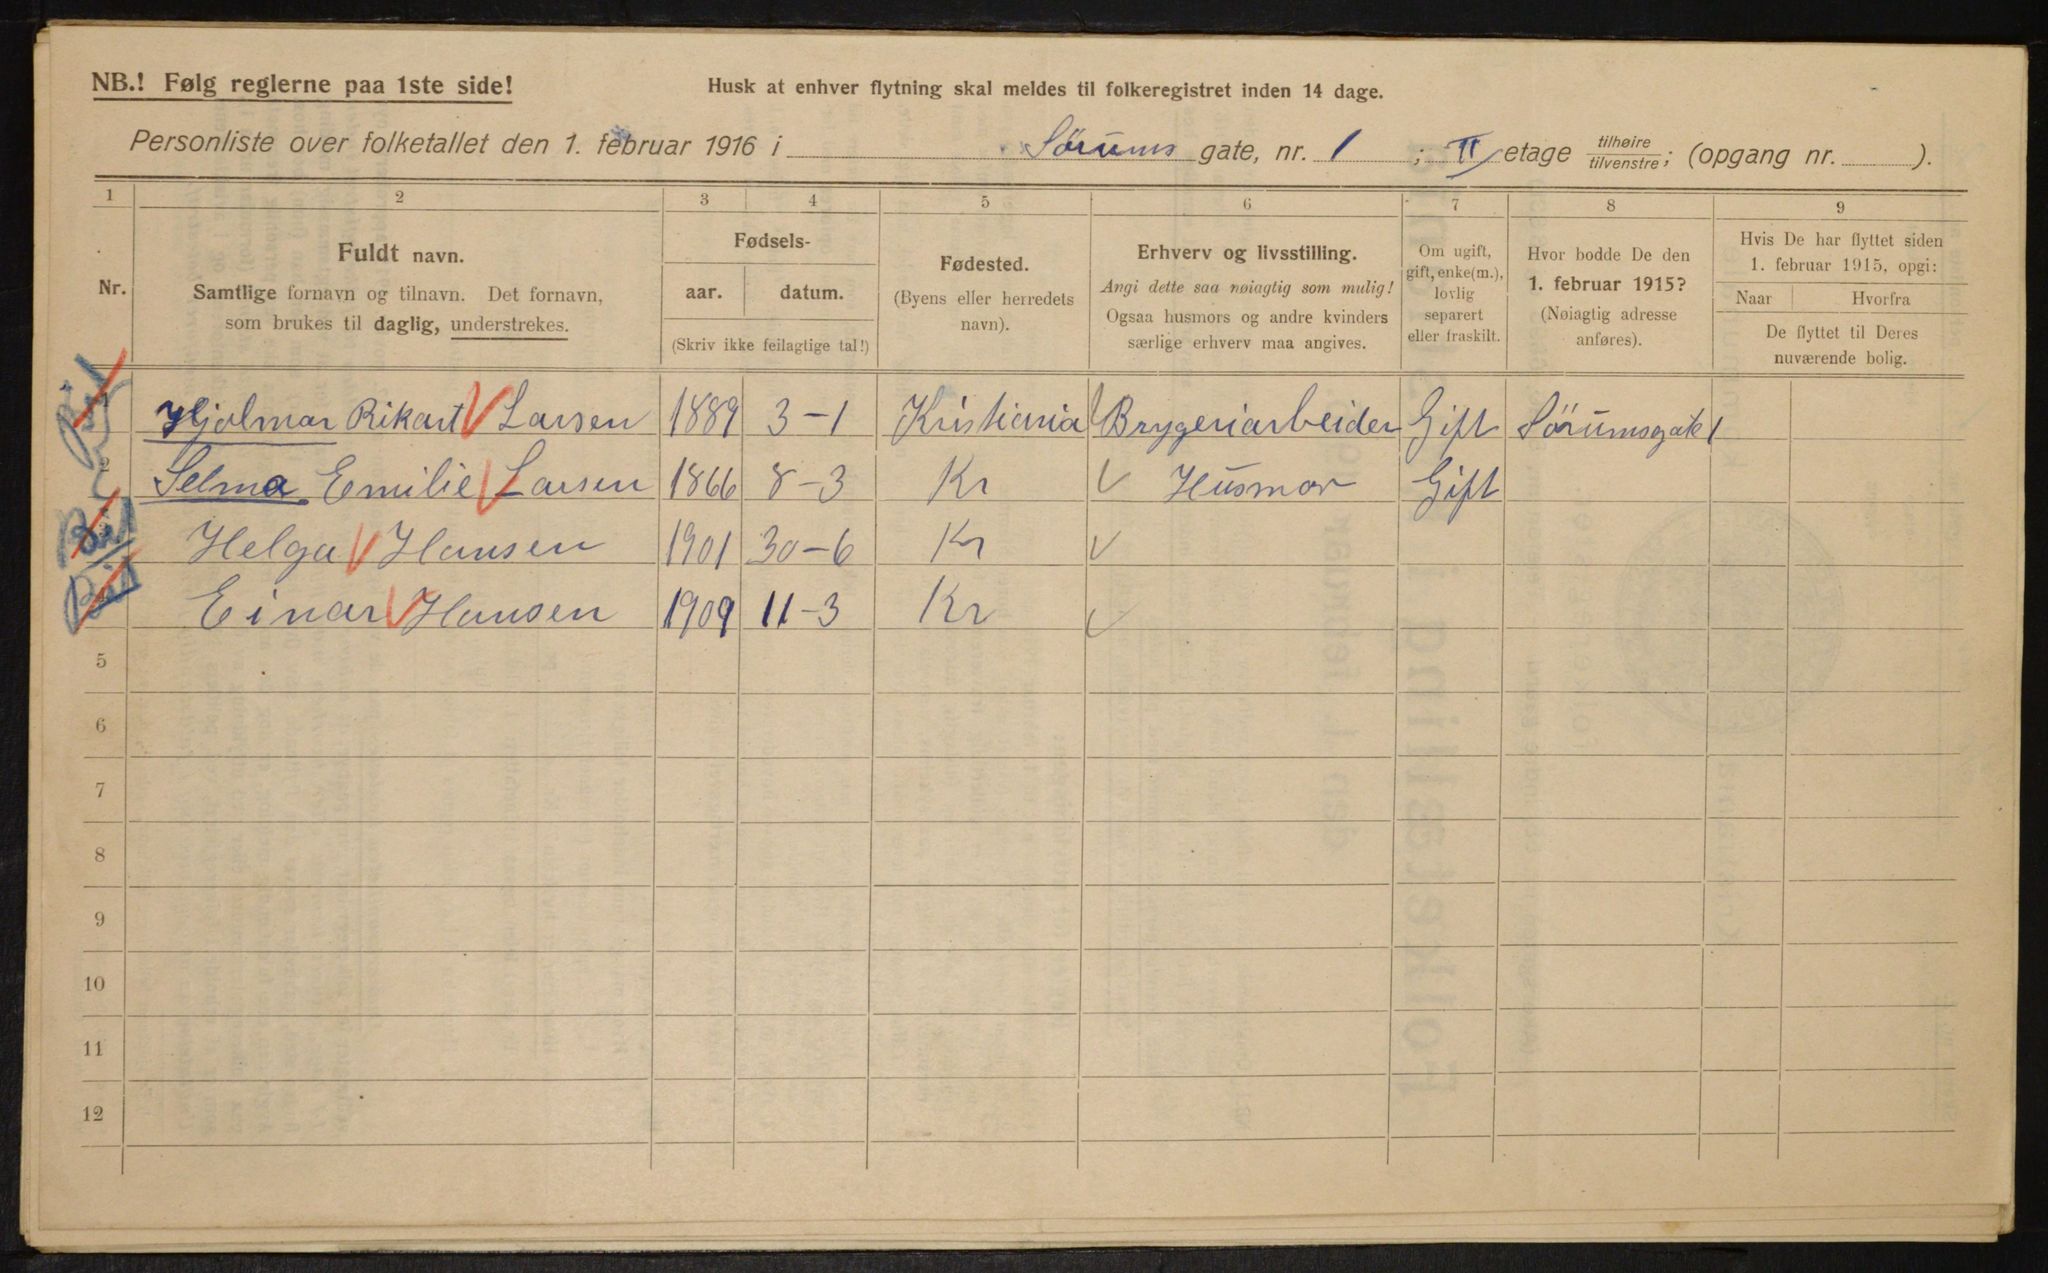 NB.! Følg reglerne paa 1ste side!
Husk at enhver flytning skal meldes til folkeregistret inden 14 dage.
Personliste over folketallet den 1. februar 1916 i Sørums gate, nr. 1 ; II etage tilhøire/tilvenstre; (opgang nr. ).
1 2 3 4 5 6 7 8 9
Nr.
Fuldt navn.
Samtlige fornavn og tilnavn. Det fornavn,
som brukes til daglig, understrekes.
Fødsels-
aar. datum.
(Skriv ikke feilagtige tal!)
Fødested.
(Byens eller herredets
navn).
Erhverv og livsstilling.
Angi dette saa nøiagtig som mulig!
Ogsaa husmors og andre kvinders
særlige erhverv maa angives.
Om ugift,
gift, enke(m.),
lovlig
separert
eller fraskilt.
Hvor bodde De den
1. februar 1915?
(Nøiagtig adresse
anføres).
Hvis De har flyttet siden
1. februar 1915, opgi:
Naar Hvorfra
De flyttet til Deres
nuværende bolig.
Hjalmar Rikart Larsen 1889 3-1 Kristiania Brygeriarbeider Gift Sørumsgate 1
2 Selma Emilie Larsen 1866 8-3 Kr Husmor Gift
Helga Hansen 1901 30-6 Kr
Einar Hansen 1909 11-3 Kr
5
6
7
8
9
10
11
12